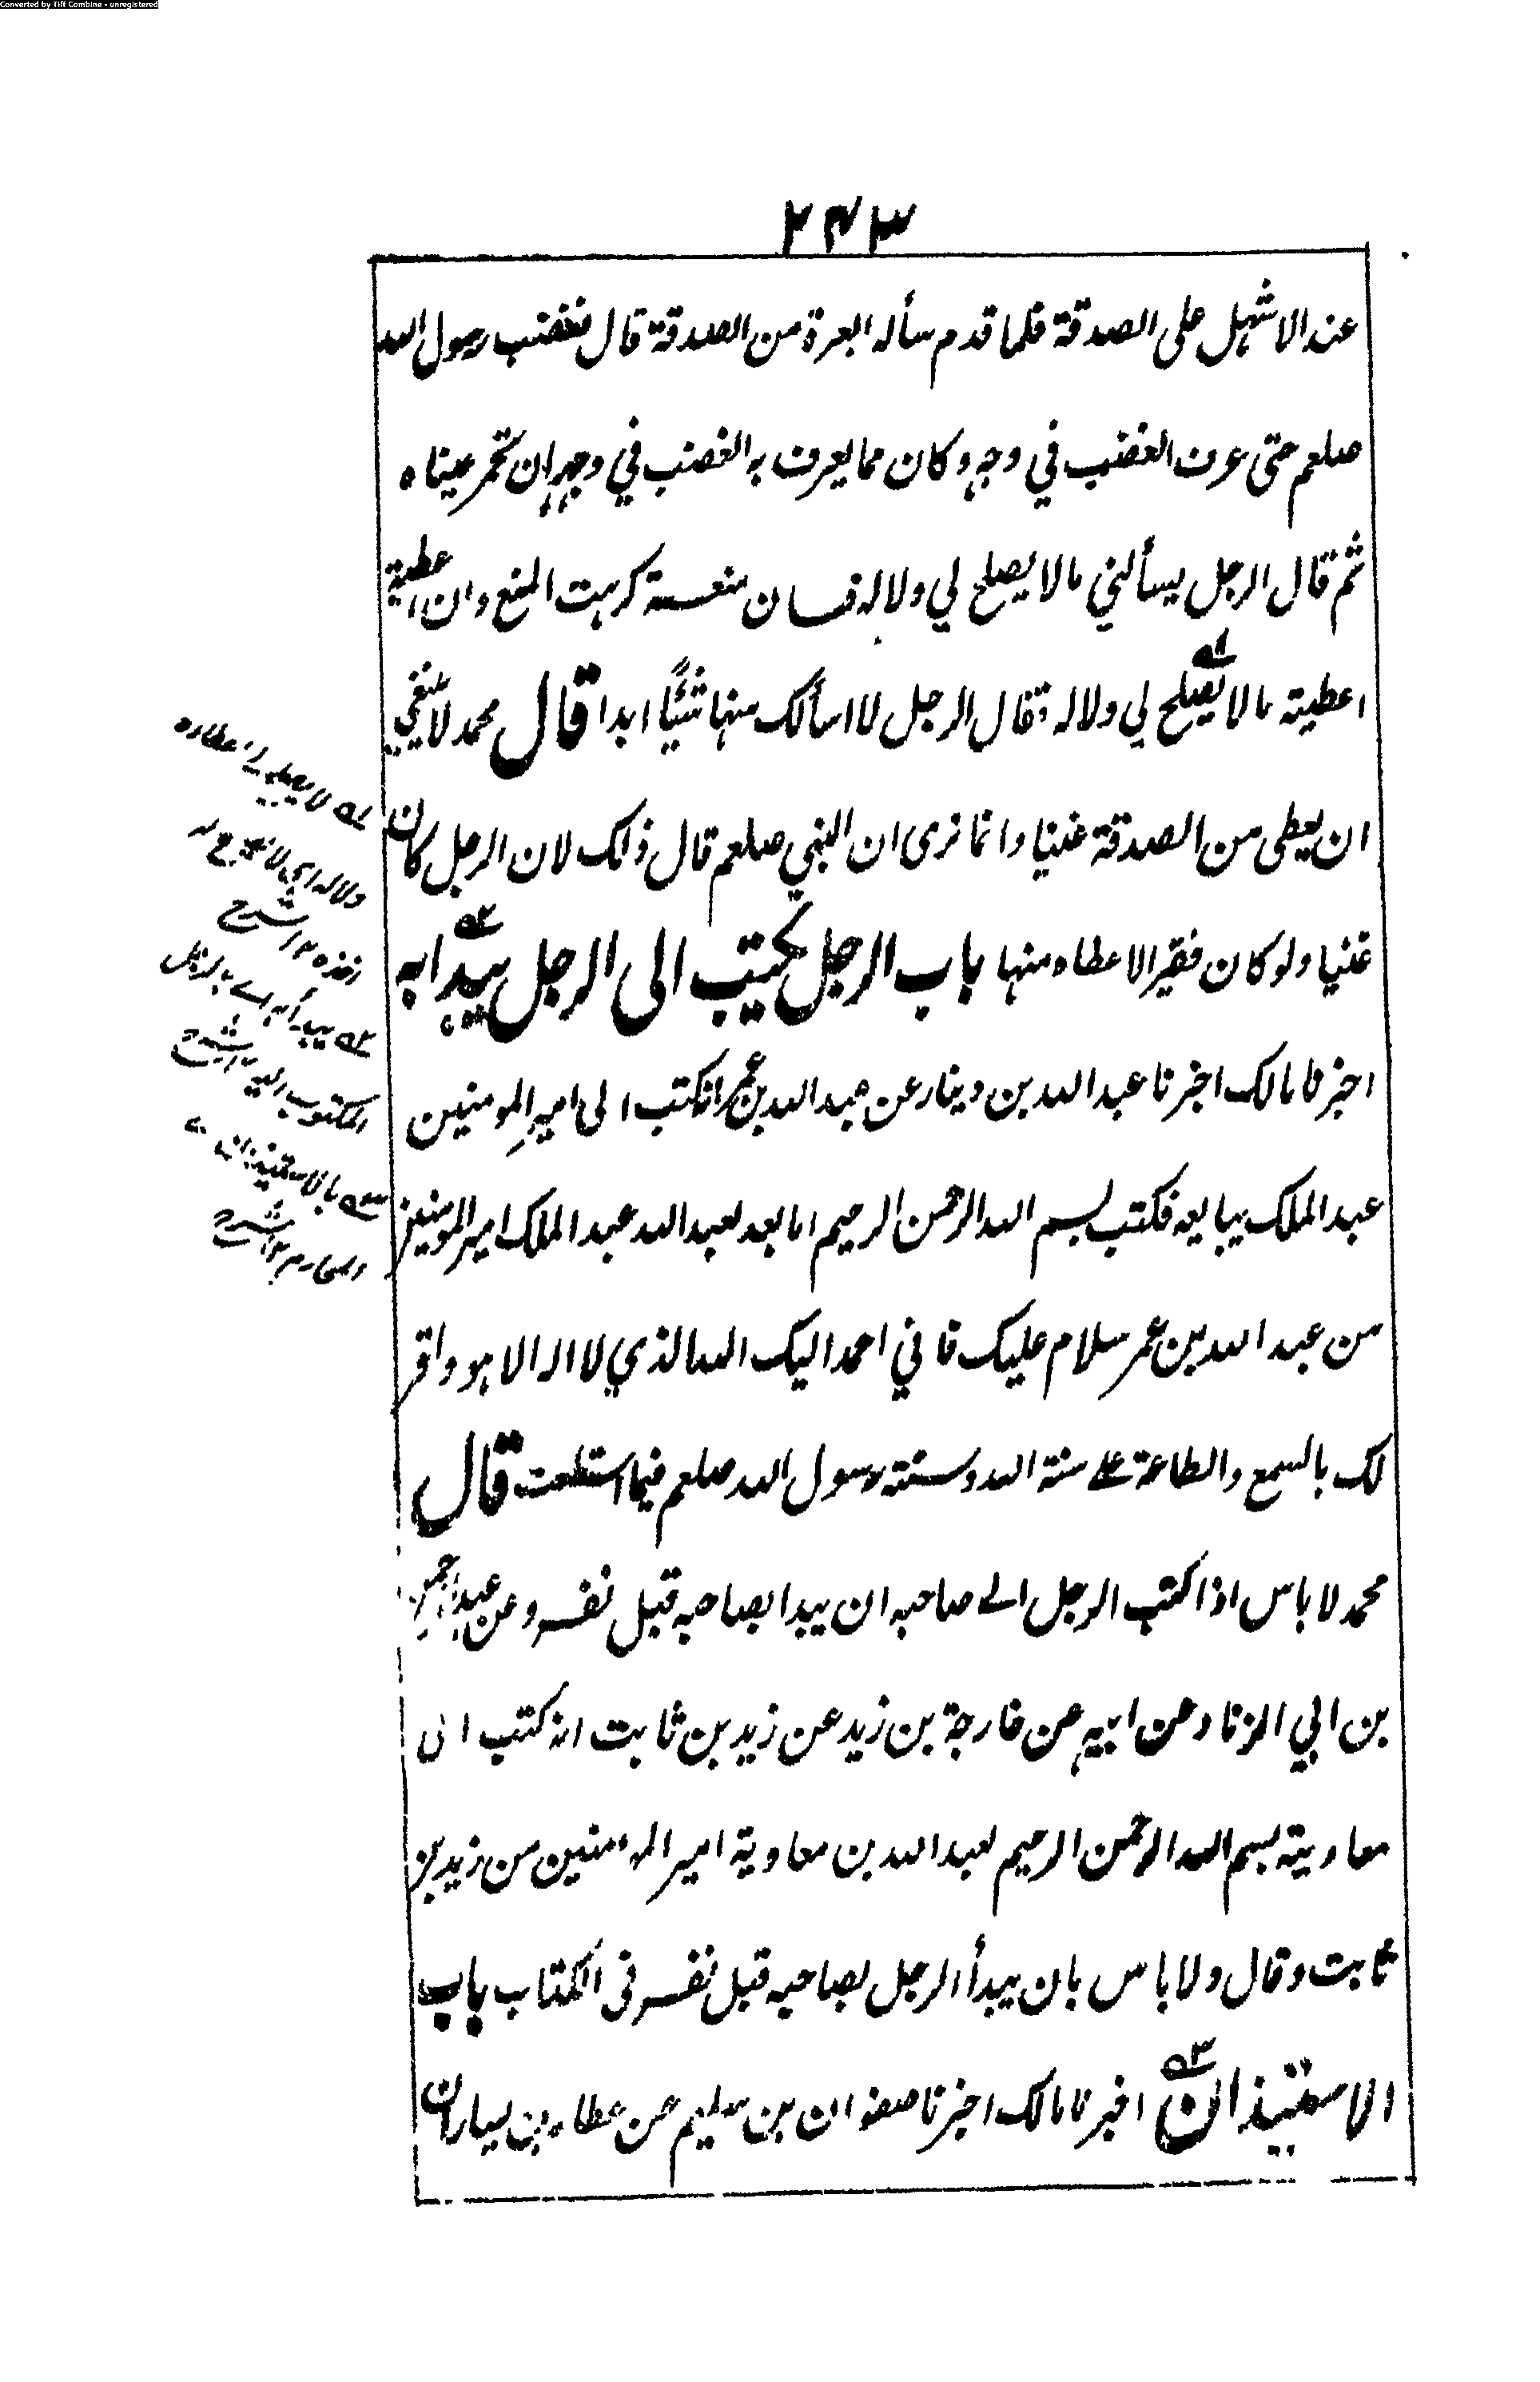 Converted by Tiff Combine - unregistered
٢٤٣
عند الاشهل على الصدقة فلما قدم سأله ابعرة من الصدقة قال فغضب رسول الله
صلعم حتى عرف الغضب في وجهه وكان مما يعرف به الغضب في وجهه ان تحمر عيناه
ثم قال الرجل يسألني مالا يصلح لي ولا له فان منعته كرهت المنع وان اعطيته
اعطيته مالا يصلح لي ولا له فقال الرجل لا اسألك منها شيئًا ابدا قال محمد لا ينبغي
ان يعطى من الصدقة غنيا وانما نرى ان النبي صلعم قال ذلك لان الرجل كان
غنيا ولو كان فقيرا لاعطاه منها باب الرجل يكتب الى الرجل يبدا به
اخبرنا مالك اخبرنا عبد الله بن دينار عن عبد الله بن عمر انه كتب الى امير المومنين
عبد الملك يبايعه فكتب بسم الله الرحمن الرحيم اما بعد لعبد الله عبد الملك امير المومنين
من عبد الله بن عمر سلام عليك فاني احمد اليك الله الذي لا اله الا هو واقر
لك بالسمع والطاعة على سنة الله وسنة رسول الله صلعم فيما استطعت قال
محمد لا باس اذا كتب الرجل الى صاحبه ان يبدا بصاحبه قبل نفسه وعن عبد الرحمن
بن ابي الزناد عن ابيه عن خارجة بن زيد عن زيد بن ثابت انه كتب الى
معاوية بسم الله الرحمن الرحيم لعبد الله بن معاوية امير المؤمنين من زيد بن
ثابت وقال ولا باس بان يبدأ الرجل بصاحبه قبل نفسه فى الكتاب باب
الاستيذان اخبرنا مالك اخبرنا صفوان بن سليم عن عطاء بن يسار ان
له لا يصلح لي اعطاؤه
ولا له اي لا
اخذه ١٢ شرح
يبدأ به اي بالرجل
المكتوب اليه ١٢ شرح
بالاستيذان
شرح